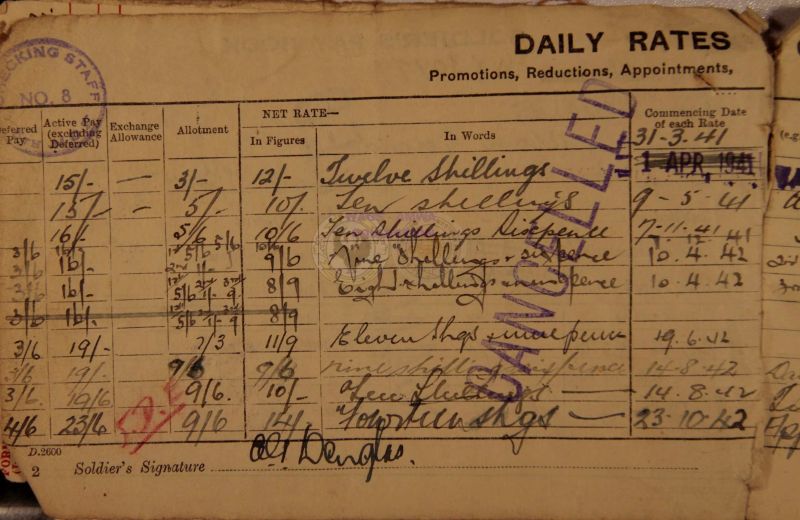 DAILY RATES
Promotions, Reductions, Appointments,
CHECKING STAFF
NO. 8
Deferred Pay Active Pay (excluding Deferred) Exchange Allowance Allotment NET RATE— In Figures In Words Commencing Date of each Rate
31-3-41
15/- — 3/- 12/- Twelve Shillings 1 APR. 1941
15/- — 5/- 10/- Ten shillings 9-5-41
16/- 5/6 10/6 Ten shillings Sixpence 7-11-41
3/6 16/- 9/6 Nine Shillings & sixpence 10.4.42
16/- 8/9 Eight shillings & ninepence 10.4.42
3/6 16/- 8/9
3/6 19/- 7/3 11/9 Eleven Shgs & ninepence 19.6.42
3/6 19/- 9/6 9/6 nine shillings sixpence 14-8-42
3/6 19/6 9/6. 10/- Ten Shillings — 14.8.42
4/6 23/6 9/6 14/- Fourteen shgs — 23-10-42
CANCELLED
D.2600
2 Soldier's Signature Douglas.